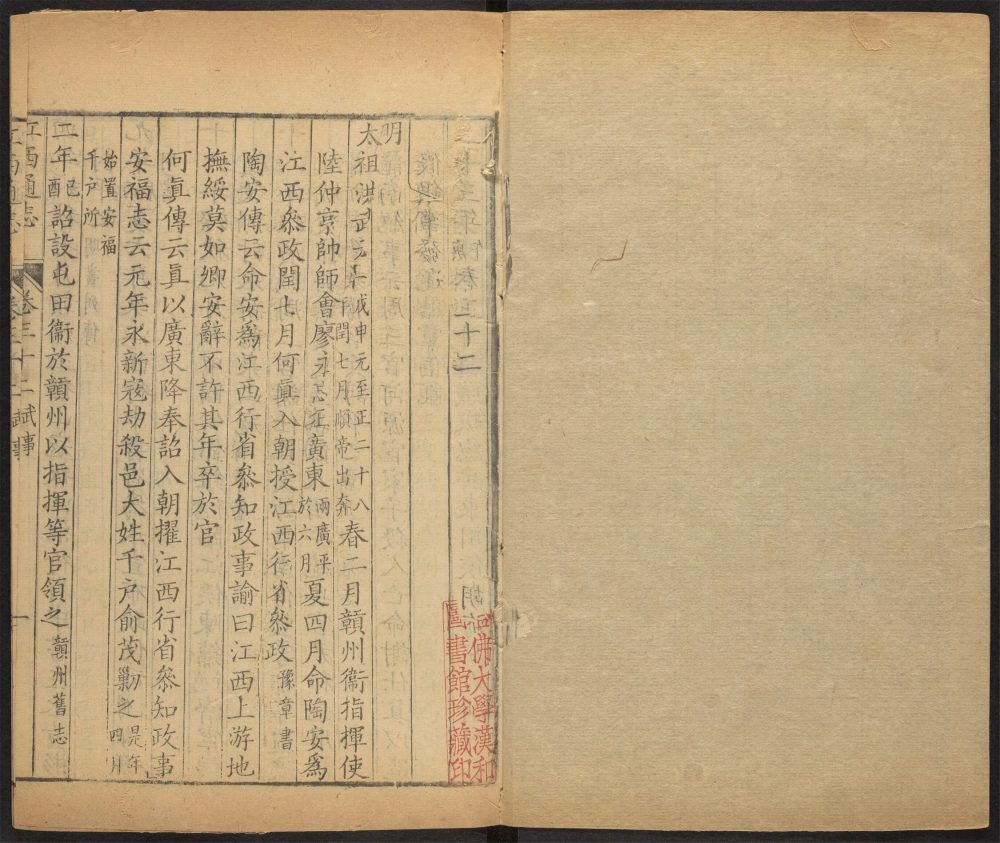 十二
胡
哈佛大學漢和
圖書館珍藏印
明
太祖洪武元年戊申元至正二十八年閏七月順帝出奔春二月贛州衞指揮使
陸仲亨帥師會廖永忠征廣東兩廣平於六月夏四月命陶安爲
江西叅政閏七月何眞入朝授江西行省叅政豫章書
陶安傳云命安爲江西行省叅知政事諭曰江西上游地
撫綏莫如卿安辭不許其年卒於官
何眞傳云眞以廣東降奉詔入朝擢江西行省叅知政事
安福志云元年永新寇劫殺邑大姓千戸俞茂勦之是年四月
始置安福千戸所
二年己酉詔設屯田衞於贛州以指揮等官領之贛州舊志
江西通志 卷三十二 武事 一